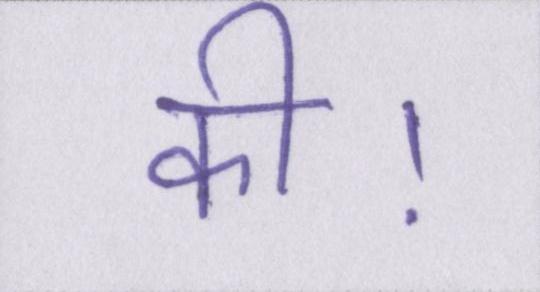 की!